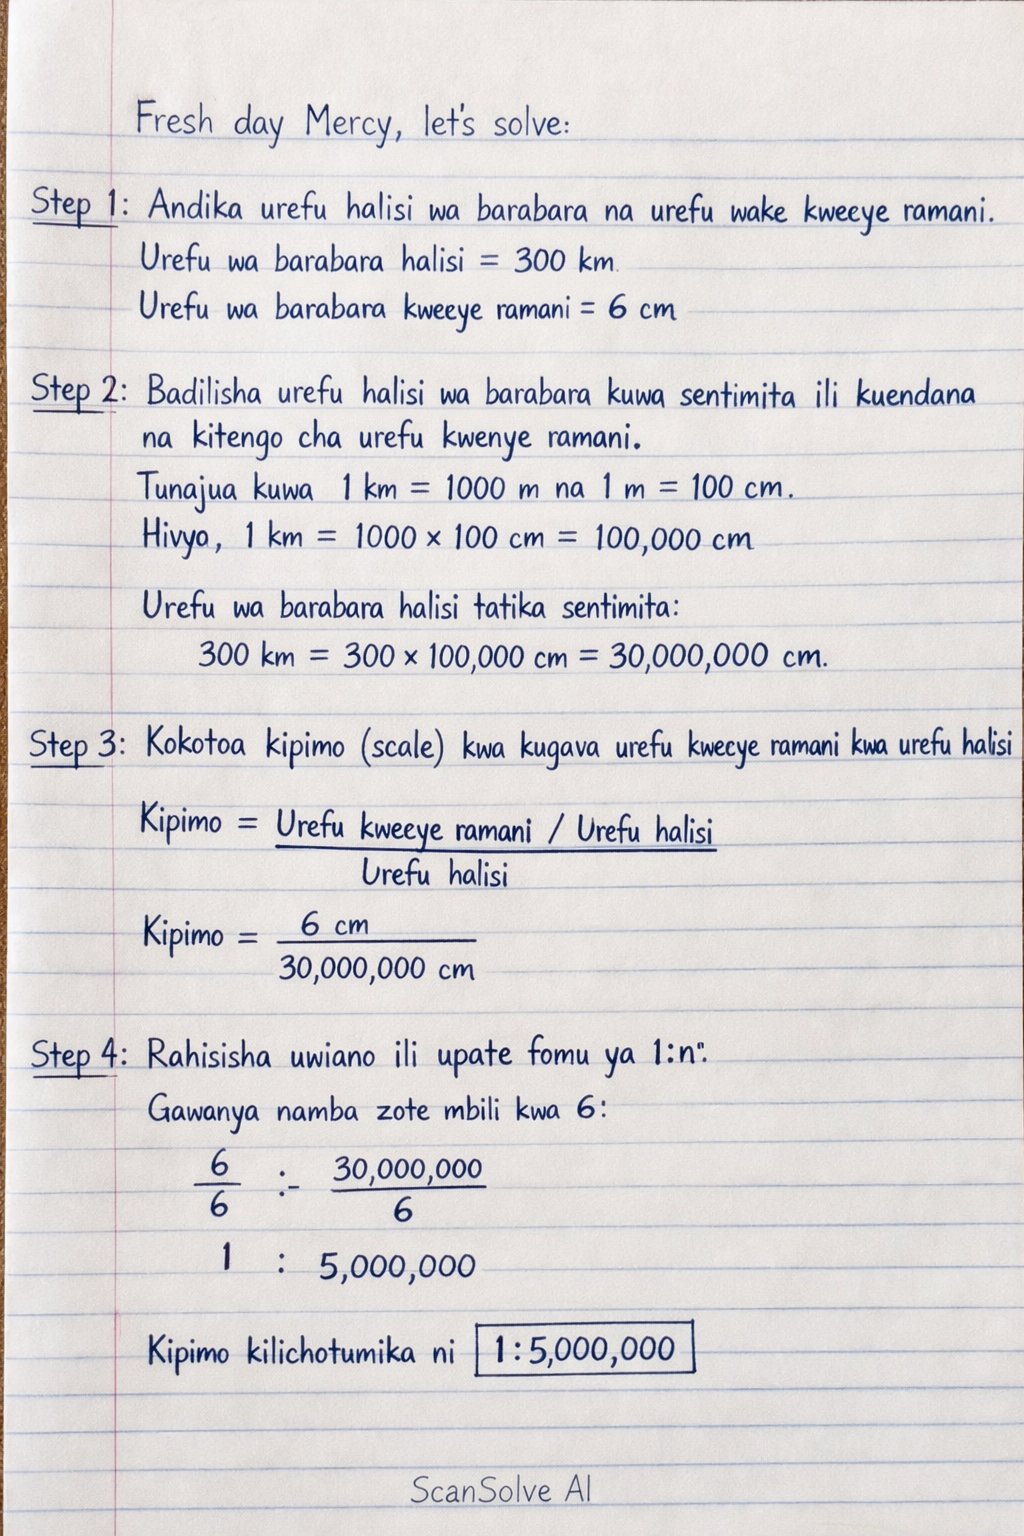 Fresh day Mercy, let's solve:
Step 1: Andika urefu halisi wa barabara na urefu wake kweeye ramani.
Urefu wa barabara halisi = 300 km.
Urefu wa barabara kweeye ramani = 6 cm
Step 2: Badilisha urefu halisi wa barabara kuwa sentimita ili kuendana
na kitengo cha urefu kwenye ramani.
Tunajua kuwa 1 km = 1000 m na 1 m = 100 cm.
Hivyo, 1 km = 1000 × 100 cm = 100,000 cm
Urefu wa barabara halisi tatika sentimita:
300 km = 300 × 100,000 cm = 30,000,000 cm.
Step 3: Kokotoa kipimo (scale) kwa kugava urefu kweeye ramani kwa urefu halisi
Kipimo = Urefu kweeye ramani / Urefu halisi
Urefu halisi
Kipimo = 6 cm
30,000,000 cm
Step 4: Rahisisha uwiano ili upate fomu ya 1:n".
Gawanya namba zote mbili kwa 6:
6 :- 30,000,000
6 6
1 : 5,000,000
Kipimo kilichotumika ni 1:5,000,000
ScanSolve AI